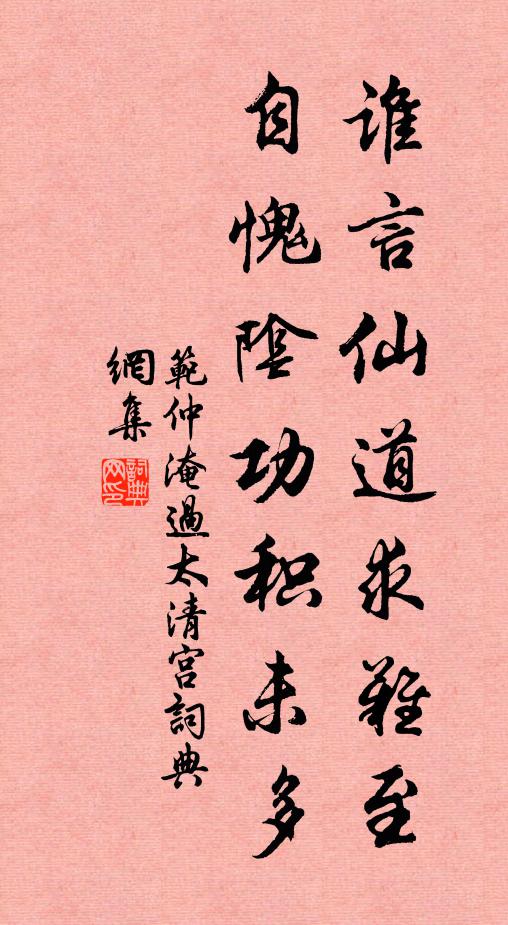 谁言仙道求難至
自愧陰功积未多
範仲淹過太清宫詞典
網集
詞典网印